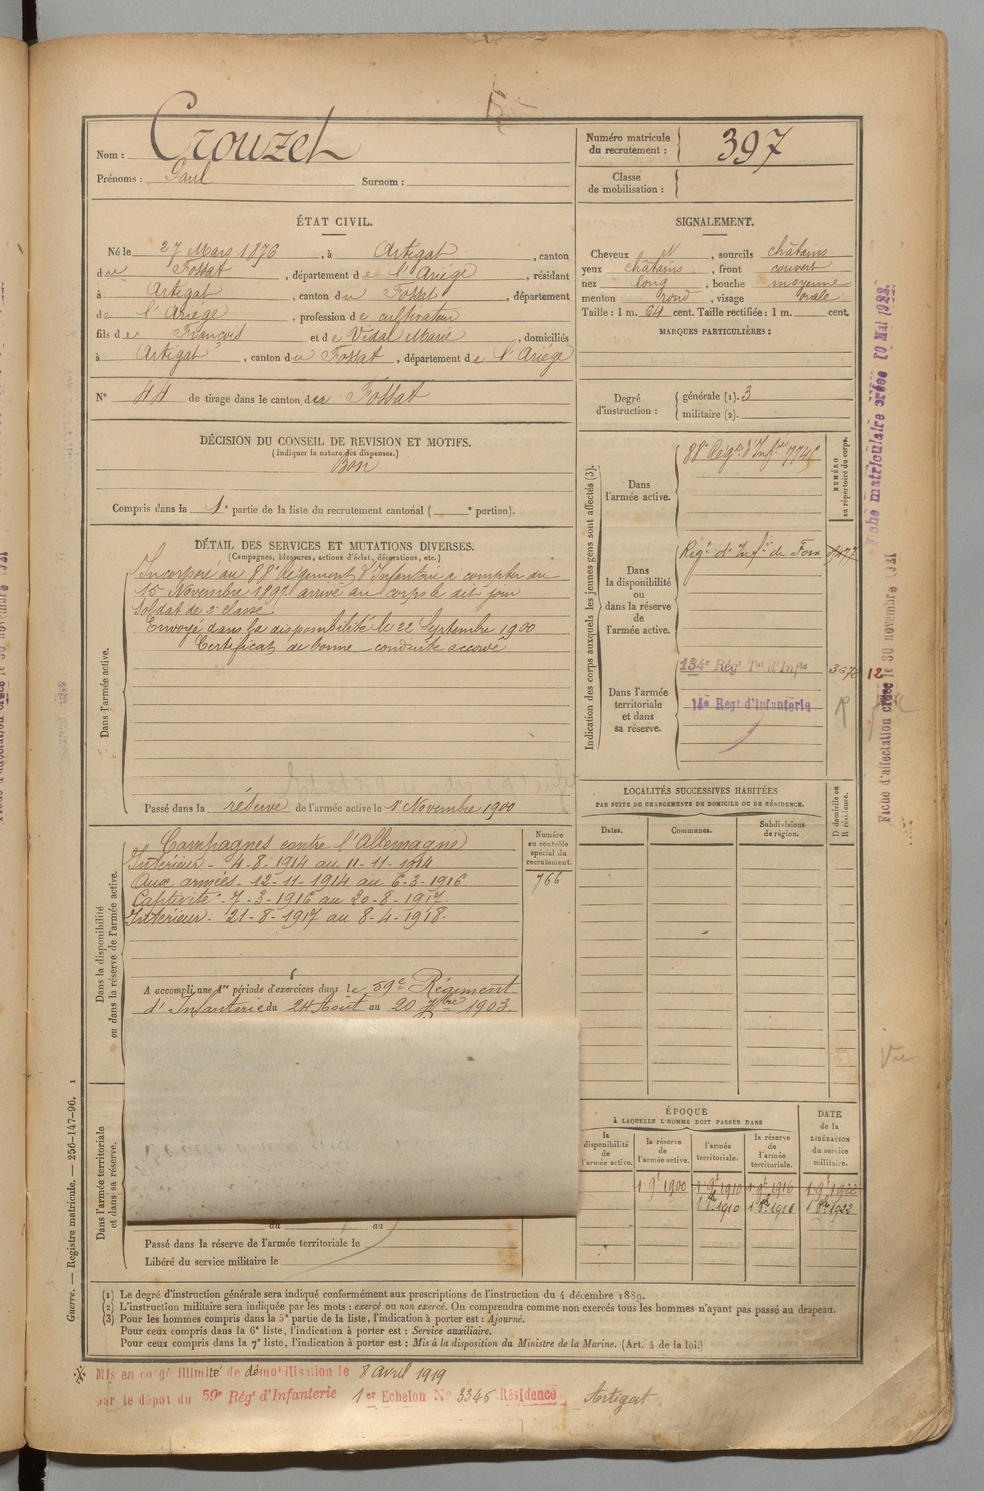 Nom : Crouzet
Prénoms : Paul Surnom :
Numéro matricule du recrutement : 397
Classe de mobilisation :
ÉTAT CIVIL.
Né le 27 Mars 1876, à Artigat, canton
du Fossat, département de l'Ariège, résidant
à Artigat, canton du Fossat, département
de l'Ariège, profession de cultivateur
fils de François et de Vidal Marie, domiciliés
à Artigat, canton du Fossat, département de l'Ariège
N° 44 de tirage dans le canton de Fossat
SIGNALEMENT.
Cheveux , sourcils châtains
yeux châtains, front couvert
nez long, bouche moyenne
menton rond, visage ovale
Taille : 1 m. 64 cent. Taille rectifiée : 1 m. cent.
MARQUES PARTICULIÈRES :
Degré d'instruction : générale (1). 3
militaire (2).
DÉCISION DU CONSEIL DE REVISION ET MOTIFS.
(Indiquer la nature des dispenses.)
Bon
Compris dans la 1e partie de la liste du recrutement cantonal ( e portion).
DÉTAIL DES SERVICES ET MUTATIONS DIVERSES.
(Campagnes, blessures, actions d'éclat, décorations, etc.)
Dans l'armée active.
Incorporé au 88e Régiment d'Infanterie à compter du
15 Novembre 1897 arrivé au corps le dit jour
Soldat de 2e classe
Envoyé dans la disponibilité le 22 Septembre 1900
Certificat de bonne conduite accordé
Passé dans la réserve de l'armée active le 1er Novembre 1900
Indication des corps auxquels les jeunes gens sont affectés (3).
NUMÉRO au répertoire du corps.
Dans l'armée active.
88e Régt d'Infie
Dans la disponibilité ou dans la réserve de l'armée active.
Régt d'Infie de Foix
Dans l'armée territoriale et dans sa réserve.
134e Régt Tal d'Infie
Regt d'Infanterie
12
LOCALITÉS SUCCESSIVES HABITÉES
PAR SUITE DE CHANGEMENTS DE DOMICILE OU DE RÉSIDENCE.
Dates. Communes. Subdivisions de région. D domicile ou R résidence.
Dans la disponibilité ou dans la réserve de l'armée active.
Numéro au contrôle spécial du recrutement.
766
Campagnes contre l'Allemagne
Intérieur - 4-8-1914 au 11-11-1914
Aux armées - 12-11-1914 au 6-3-1916
Captivité - 7-3-1916 au 20-8-1917
Intérieur - 21-8-1917 au 8-4-1918
A accompli une 1re période d'exercices dans le 59e Régiment
d'Infanterie du 24 Août au 20 7bre 1903.
Dans l'armée territoriale et dans sa réserve.
du au
Passé dans la réserve de l'armée territoriale le
Libéré du service militaire le
ÉPOQUE
À LAQUELLE L'HOMME DOIT PASSER DANS
la disponibilité de l'armée active. la réserve de l'armée active. l'armée territoriale. la réserve de l'armée territoriale.
DATE de la LIBÉRATION du service militaire.
1 9e 1900 1 9e 1910 1 9e 1916 1 9e 1922
(1) Le degré d'instruction générale sera indiqué conformément aux prescriptions de l'instruction du 4 décembre 1889.
(2) L'instruction militaire sera indiquée par les mots : exercé ou non exercé. On comprendra comme non exercés tous les hommes n'ayant pas passé au drapeau.
(3) Pour les hommes compris dans la 5e partie de la liste, l'indication à porter est : Ajourné.
Pour ceux compris dans la 6e liste, l'indication à porter est : Service auxiliaire.
Pour ceux compris dans la 7e liste, l'indication à porter est : Mis à la disposition du Ministre de la Marine. (Art. 4 de la loi.)
Mis en congé illimité de démobilisation le 8 avril 1919
par le dépot du 59e Régt d'Infanterie 1er Echelon N° 3346 Résidence Artigat
Guerre. — Registre matricule. — 256-147-96.
Fiche matriculaire créée 10 Mai 1922
Fiche d'affectation créée le 30 novembre 1921
Vu